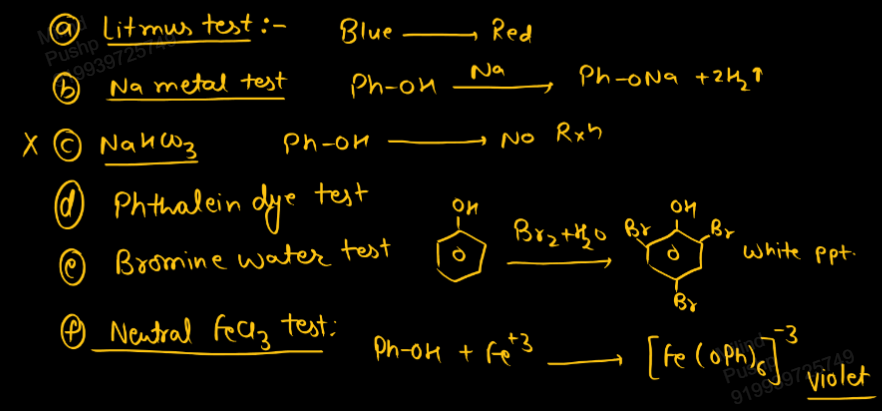 (a) Litmus test :- Blue ⟶ Red
(b) Na metal test Ph-OH —Na⟶ Ph-ONa + 2H₂↑
X (c) NaHCO₃ Ph-OH ⟶ No Rxn
(d) Phthalein dye test
(e) Bromine water test OH —Br₂+H₂O⟶ OH Br Br Br White ppt.
(f) Neutral FeCl₃ test: Ph-OH + Fe⁺³ ⟶ [Fe(OPh)₆]⁻³ Violet
Pushp
919939725749